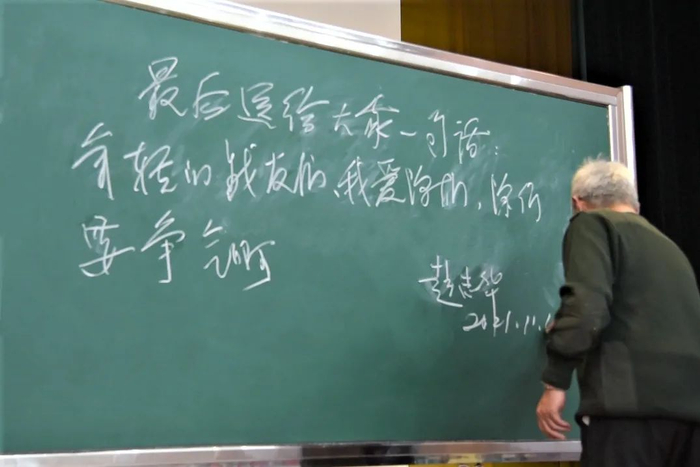 最后送给大家一句话:
年轻的战友们、我爱你们、你们
要争气啊
赵志华
2021.11.1